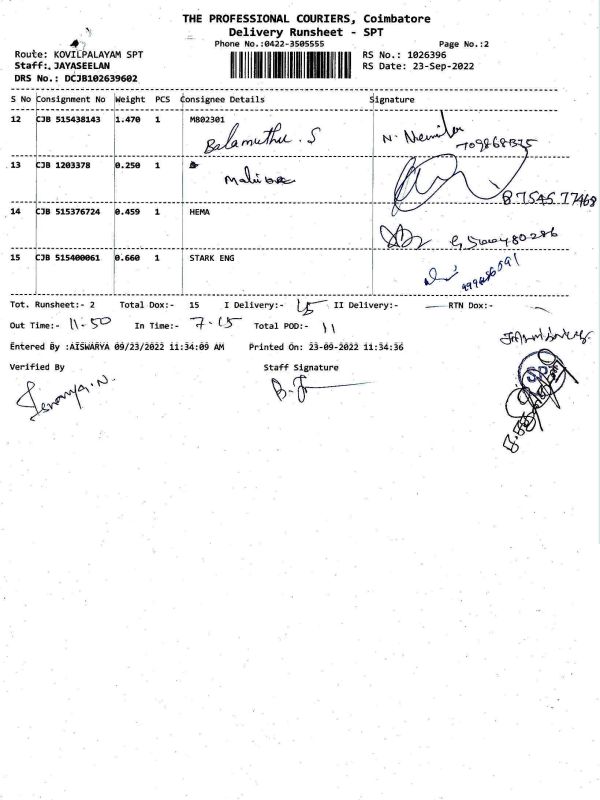 THE PROFESSIONAL COURIERS, Coimbatore
Delivery Runsheet - SPT
Phone No.:0422-3505555 Page No.:2
Route: KOVILPALAYAM SPT RS No.: 1026396
Staff: JAYASEELAN RS Date: 23-Sep-2022
DRS No.: DCJB102639602
S No Consignment No Weight PCS Consignee Details Signature
12 CJB 515438143 1.470 1 M802301
Balamuthu. S N.
13 CJB 1203378 0.250 1
14 CJB 515376724 0.459 1 HEMA
15 CJB 515400061 0.660 1 STARK ENG
Tot. Runsheet:- 2 Total Dox:- 15 I Delivery:- 15 II Delivery:- — RTN Dox:- —
Out Time:- 11.50 In Time:- 7.15 Total POD:- 11
Entered By :AISWARYA 09/23/2022 11:34:09 AM Printed On: 23-09-2022 11:34:36
Verified By Staff Signature